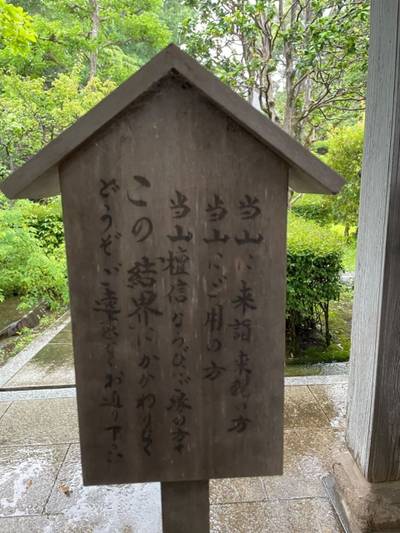 当山に来詣来観の方
当山にご用の方
当山檀信ならびにご縁の方々
この結界にかかわりなく
どうぞご遠慮なくお通り下さい